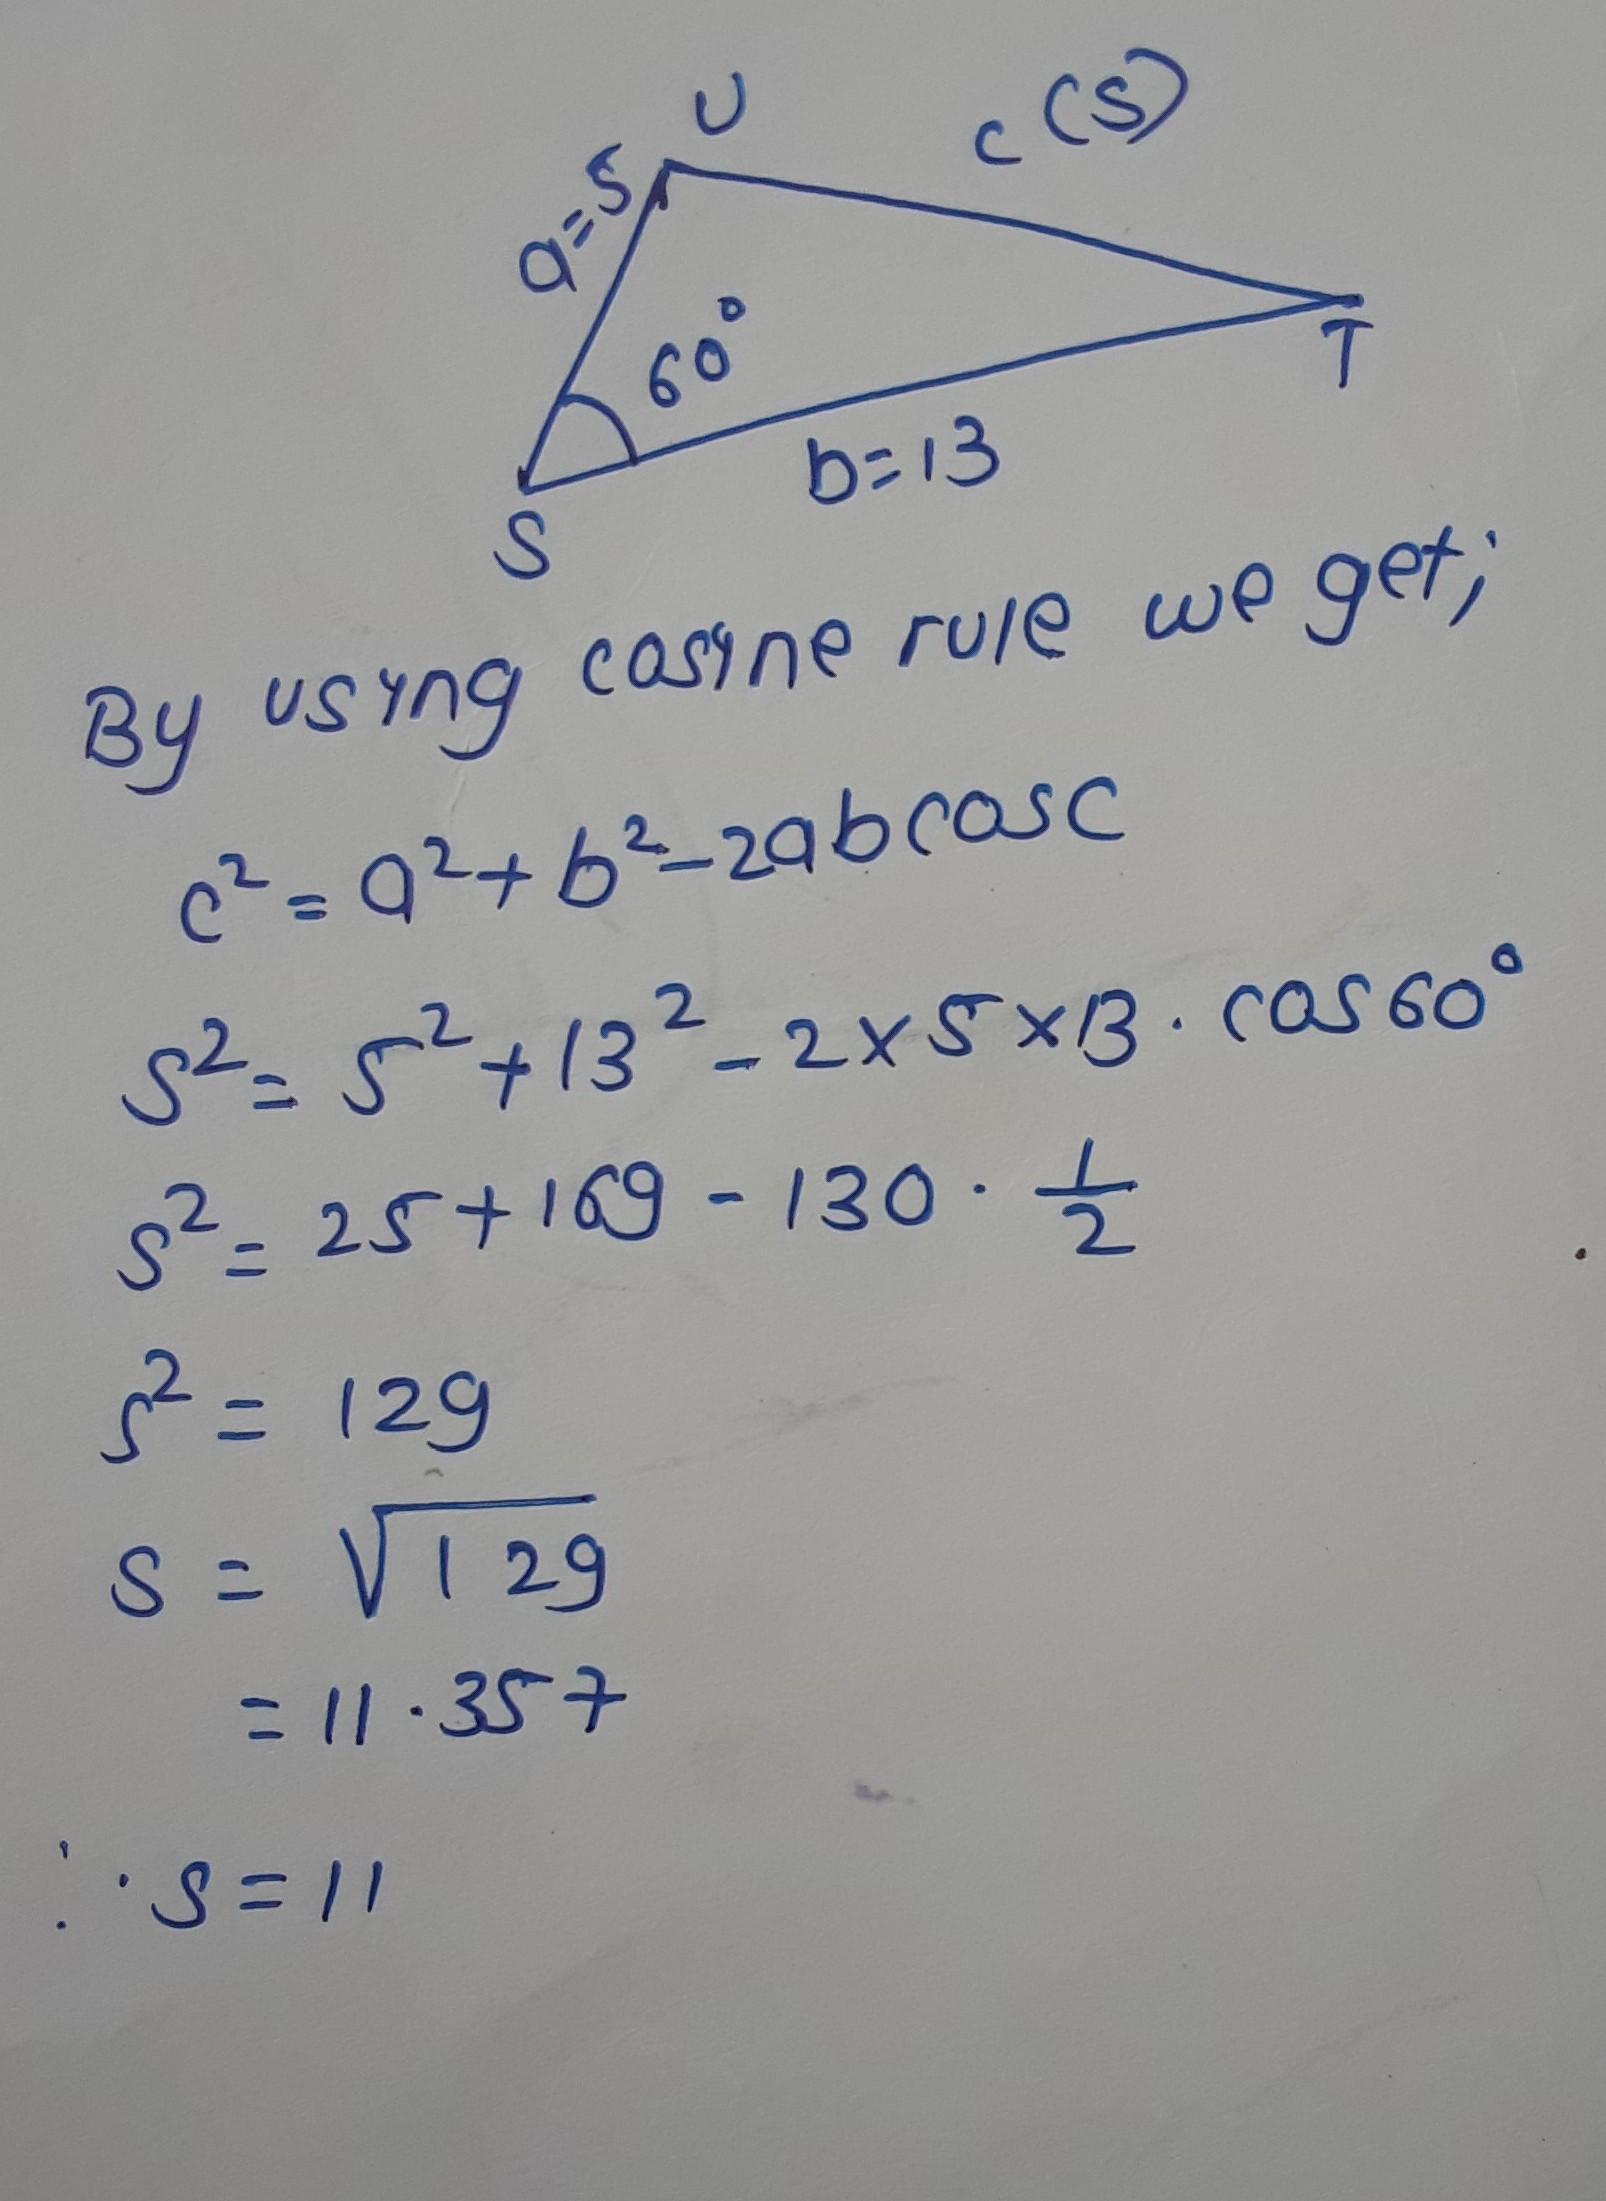 U
c (s)
a=5
60°
T
b=13
S
By using cosine rule we get;
c² = a² + b² - 2ab cos C
s² = 5² + 13² - 2 × 5 × 13 · cos 60°
s² = 25 + 169 - 130 · 1/2
s² = 129
s = √129
= 11.357
∴ s = 11